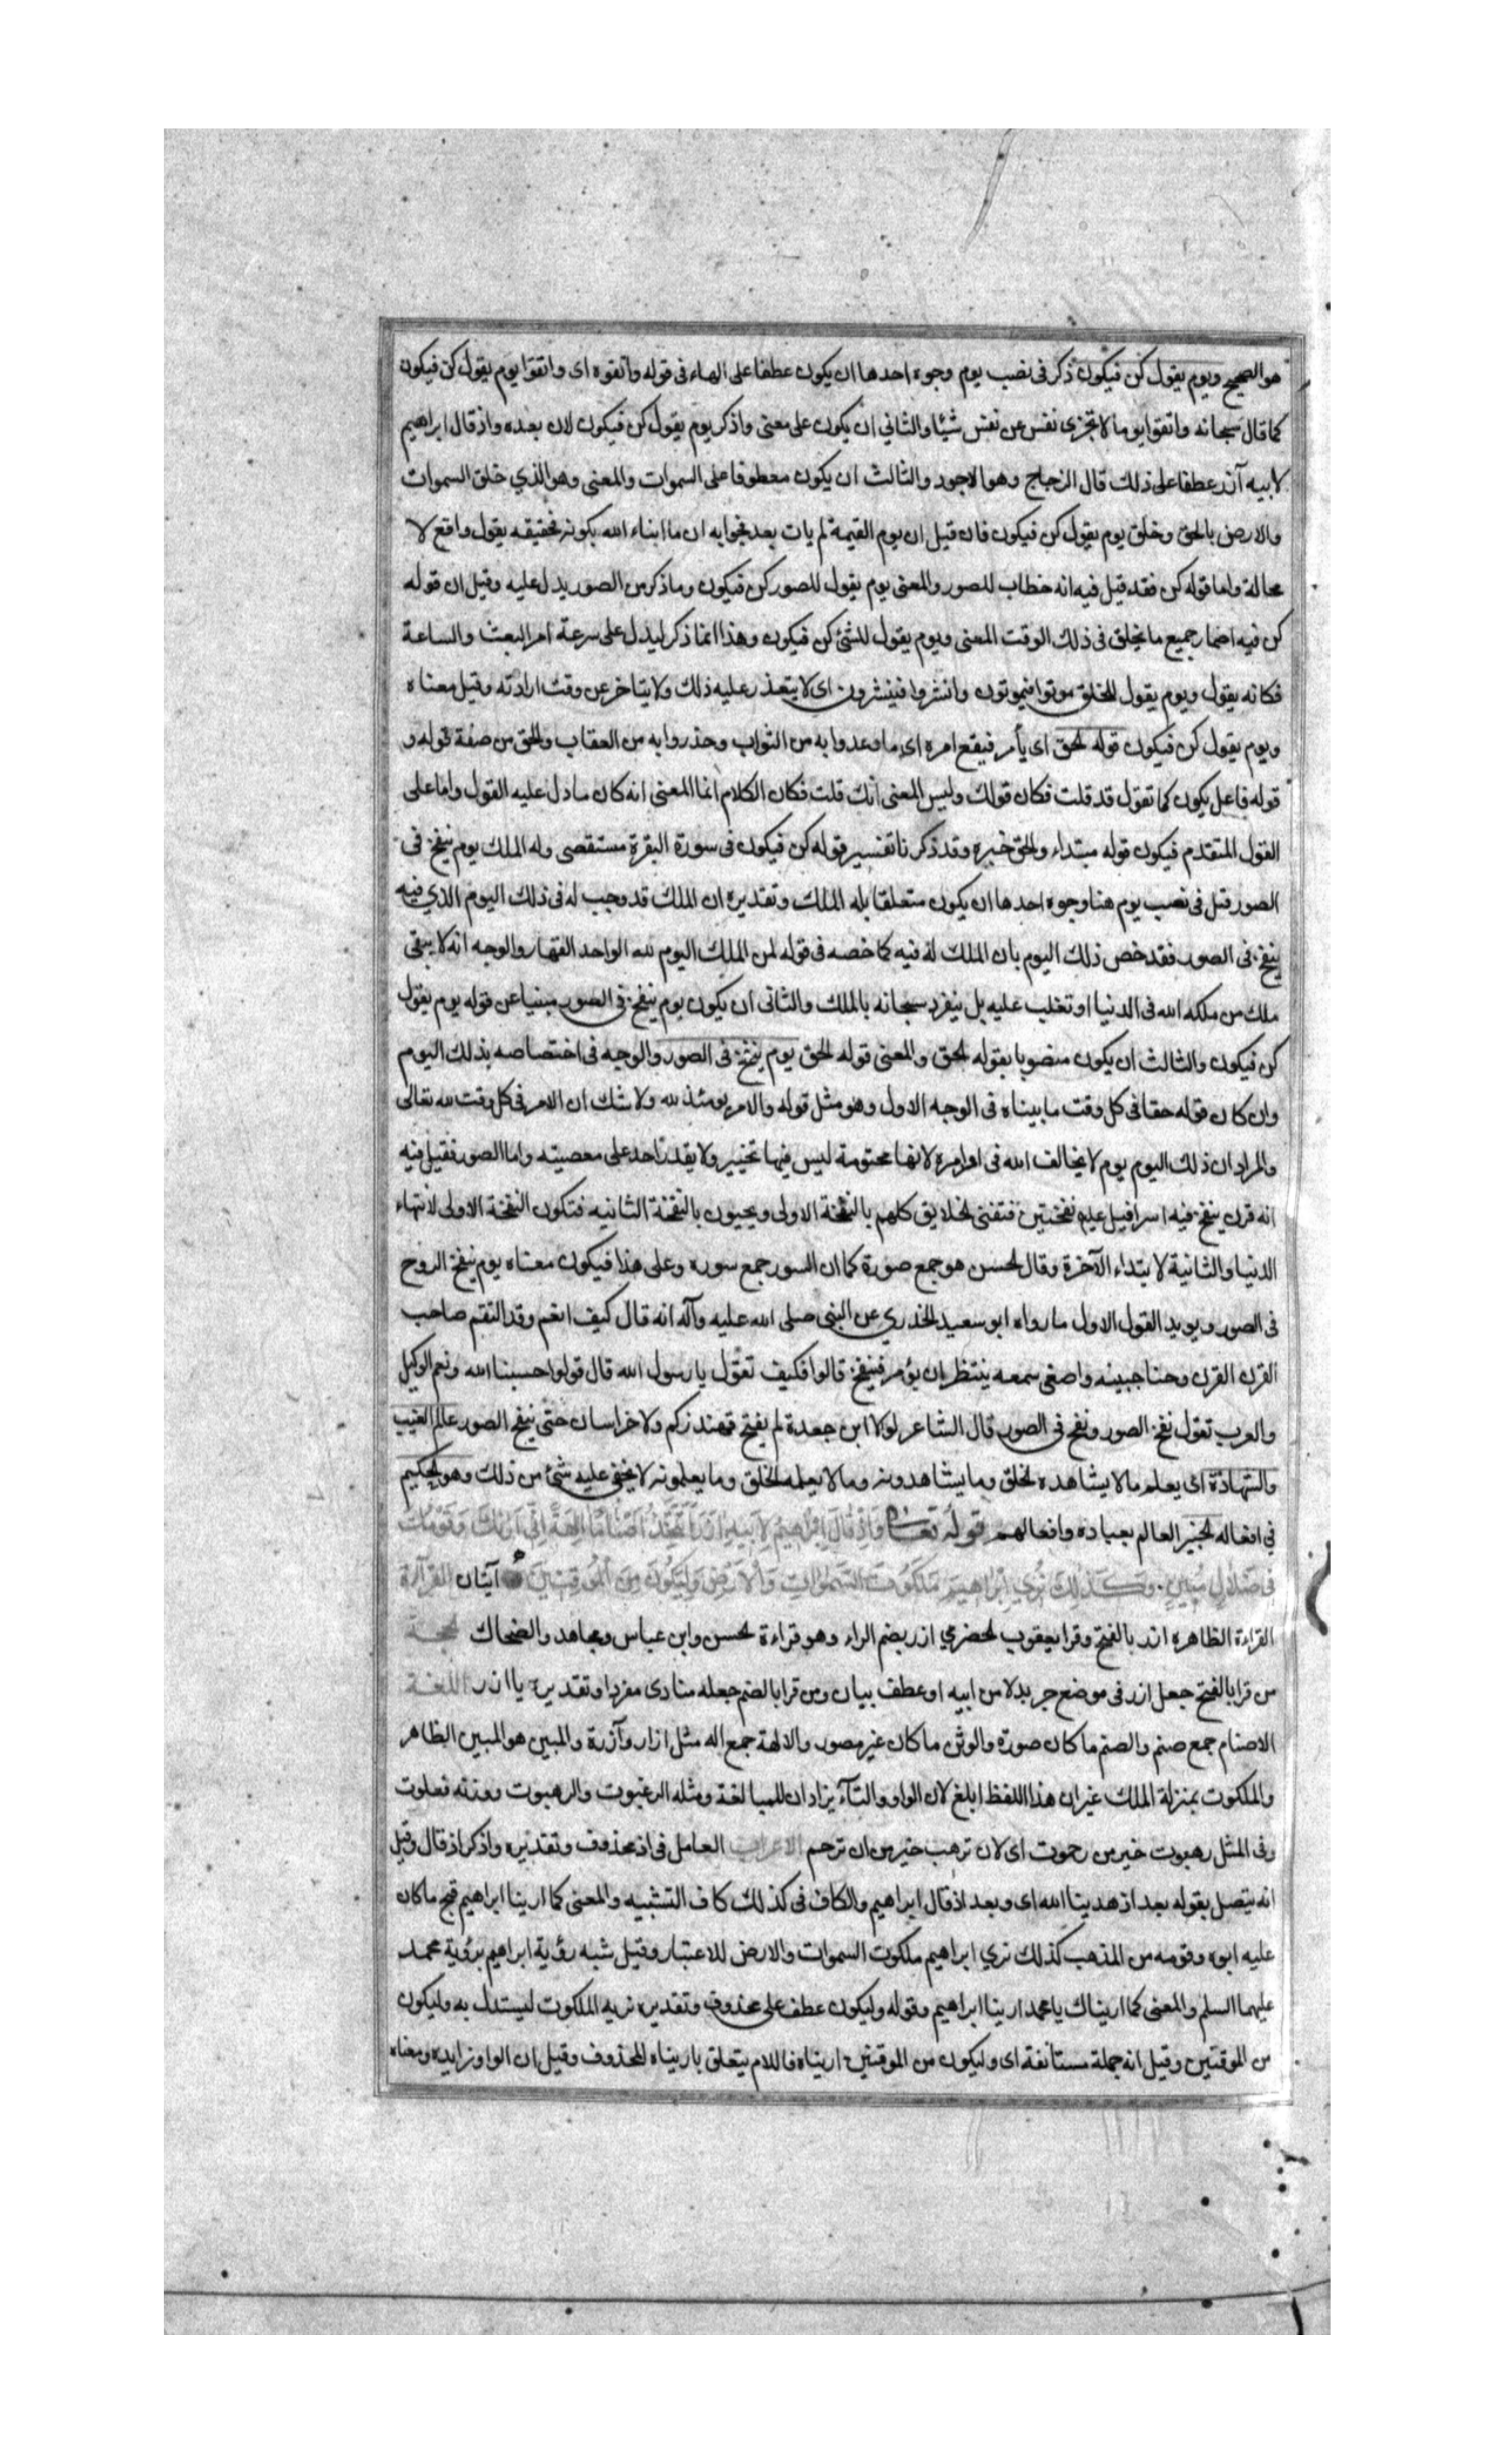 هو الصحيح ويوم يقول كن فيكون ذكر فى نصب يوم وجوه احدها ان يكون عطفا على الهاء فى قوله واتقوه اى واتقوا يوم يقول كن فيكون
كما قال سبحانه واتقوا يوما لا تجزى نفس عن نفس شيئا والثانى ان يكون على معنى واذكر يوم يقول كن فيكون لان بعده واذ قال ابراهيم
لابيه آزر عطفا على ذلك قال الزجاج وهو الاجود والثالث ان يكون معطوفا على السموات والمعنى وهو الذي خلق السموات
والارض بالحق وخلق يوم يقول كن فيكون فان قيل ان يوم القيمة لم يات بعد فجوابه ان ما ابناء الله بكونه فحقيقه يقول واقع لا
محالة واما قوله كن فقد قيل فيه انه خطاب للصور والمعنى يوم يقول للصور كن فيكون وما ذكر من الصور يدل عليه وقيل ان قوله
كن فيه اضمار جميع ما يخلق فى ذلك الوقت المعنى ويوم يقول للشئ كن فيكون وهذا انما ذكر ليدل على سرعة امر البعث والساعة
فكانه يقول ويوم يقول للخلق موتوا فيموتون وانشروا فينشرون اى لا يتعذر عليه ذلك ولا يتاخر عن وقت ارادته وقيل معناه
ويوم يقول كن فيكون قوله الحق اى يأمر فيقع امره اى ما وعدوا به من الثواب وحذروا به من العقاب والحق من صفة قوله و
قوله فاعل يكون كما تقول قد قلت فكان قولك وليس المعنى انك قلت فكان الكلام انما المعنى انه كان ما دل عليه القول واما على
القول المتقدم فيكون قوله مبتداء والحق خبره وقد ذكرنا تفسير قوله كن فيكون فى سورة البقرة مستقصى وله الملك يوم ينفخ فى
الصور قيل فى نصب يوم هنا وجوه احدها ان يكون متعلقا بله الملك وتقديره ان الملك قد وجب له فى ذلك اليوم الذي فيه
ينفخ فى الصور فقد خص ذلك اليوم بان الملك له فيه كما خصه فى قوله لمن الملك اليوم لله الواحد القهار والوجه انه لا يبقى
ملك من ملكه الله فى الدنيا او تغلب عليه بل ينفرد سبحانه بالملك والثانى ان يكون يوم ينفخ فى الصور مبنيا عن قوله يوم يقول
كن فيكون والثالث ان يكون منصوبا بقوله الحق والمعنى قوله الحق يوم ينفخ فى الصور والوجه فى اختصاصه بذلك اليوم
وان كان قوله حقا فى كل وقت ما بيناه فى الوجه الاول وهو مثل قوله والامر يومئذ لله ولا شك ان الامر فى كل وقت لله تعالى
والمراد ان ذلك اليوم يوم لا يخالف الله فى اوامره لانها محتومة ليس فيها تخيير ولا يقدر احد على معصيته واما الصور فقيل فيه
انه قرن ينفخ فيه اسرافيل عليه نفختين فتفنى الخلايق كلهم بالنفخة الاولى ويحيون بالنفخة الثانيه فتكون النفخة الاولى لانتهاء
الدنيا والثانية لابتداء الآخرة وقال الحسن هو جمع صورة كما ان السور جمع سوره وعلى هذا فيكون معناه يوم ينفخ الروح
فى الصور ويويد القول الاول ما رواه ابو سعيد الخدري عن النبى صلى الله عليه وآله انه قال كيف انعم وقد التقم صاحب
القرن القرن وحنا جبينه واصغى سمعه ينتظر ان يؤمر فينفخ قالوا فكيف تقول يا رسول الله قال قولوا حسبنا الله ونعم الوكيل
والعرب تقول نفخ الصور ونفخ فى الصور قال الشاعر لولا ابن جعدة لم يفتح قهندزكم ولا خراسان حتى ينفخ الصور عالم الغيب
والشهادة اى يعلم ما لا يشاهده الخلق وما يشاهدونه وما لا يعلمه الخلق وما يعلمونه لا يخفى عليه شئ من ذلك وهو الحكيم
فى افعاله الخبير العالم بعباده وافعالهم قوله تعالى وَاِذْ قَالَ اِبْرَاهِيمُ لِاَبِيهِ اٰزَرَ اَتَتَّخِذُ اَصْنَامًا اٰلِهَةً اِنِّى اَرٰيكَ وَقَوْمَكَ
فى ضَلَالٍ مُبِينٍ وَكَذٰلِكَ نُرِي اِبْرَاهِيمَ مَلَكُوتَ السَّمٰوَاتِ وَالْاَرْضِ وَلِيَكُونَ مِنَ الْمُوقِنِينَ آيتان القرآءة
القراءة الظاهره ازر بالفتح وقرا يعقوب الحضرمي ازر بضم الراء وهو قراءة الحسن وابن عباس ومجاهد والضحاك الحجة
من قرا بالفتح جعل ازر فى موضع جر بدلا من ابيه او عطف بيان ومن قرا بالضم جعله منادى مفردا وتقديره يا ازر اللغة
الاصنام جمع صنم والصنم ما كان صورة والوثن ما كان غير مصور والالهة جمع اله مثل ازار وآزرة والمبين هو المبين الظاهر
والملكوت بمنزلة الملك غير ان هذا اللفظ ابلغ لان الواو والتآء يزادان للمبالغة ومثله الرغبوت والرهبوت ووزنه فعلوت
وفى المثل رهبوت خير من رحموت اى لان ترهب خير من ان ترحم الاعراب العامل فى اذ محذوف وتقديره واذكر اذ قال وقيل
انه يتصل بقوله بعد اذ هدينا الله اى وبعد اذ قال ابراهيم والكاف فى كذلك كاف التشبيه والمعنى كما ارينا ابراهيم قبح ما كان
عليه ابوه وقومه من المذهب كذلك نري ابراهيم ملكوت السموات والارض للاعتبار وقيل شبه رؤية ابراهيم برؤية محمد
عليهما السلم والمعنى كما اريناك يا محمد ارينا ابراهيم وقوله وليكون عطف على محذوف وتقديره نريه الملكوت ليستدل به وليكون
من الموقنين وقيل انه جملة مستانفة اى وليكون من الموقنين اريناه فاللام يتعلق باريناه المحذوف وقيل ان الواو زايده ومعناه